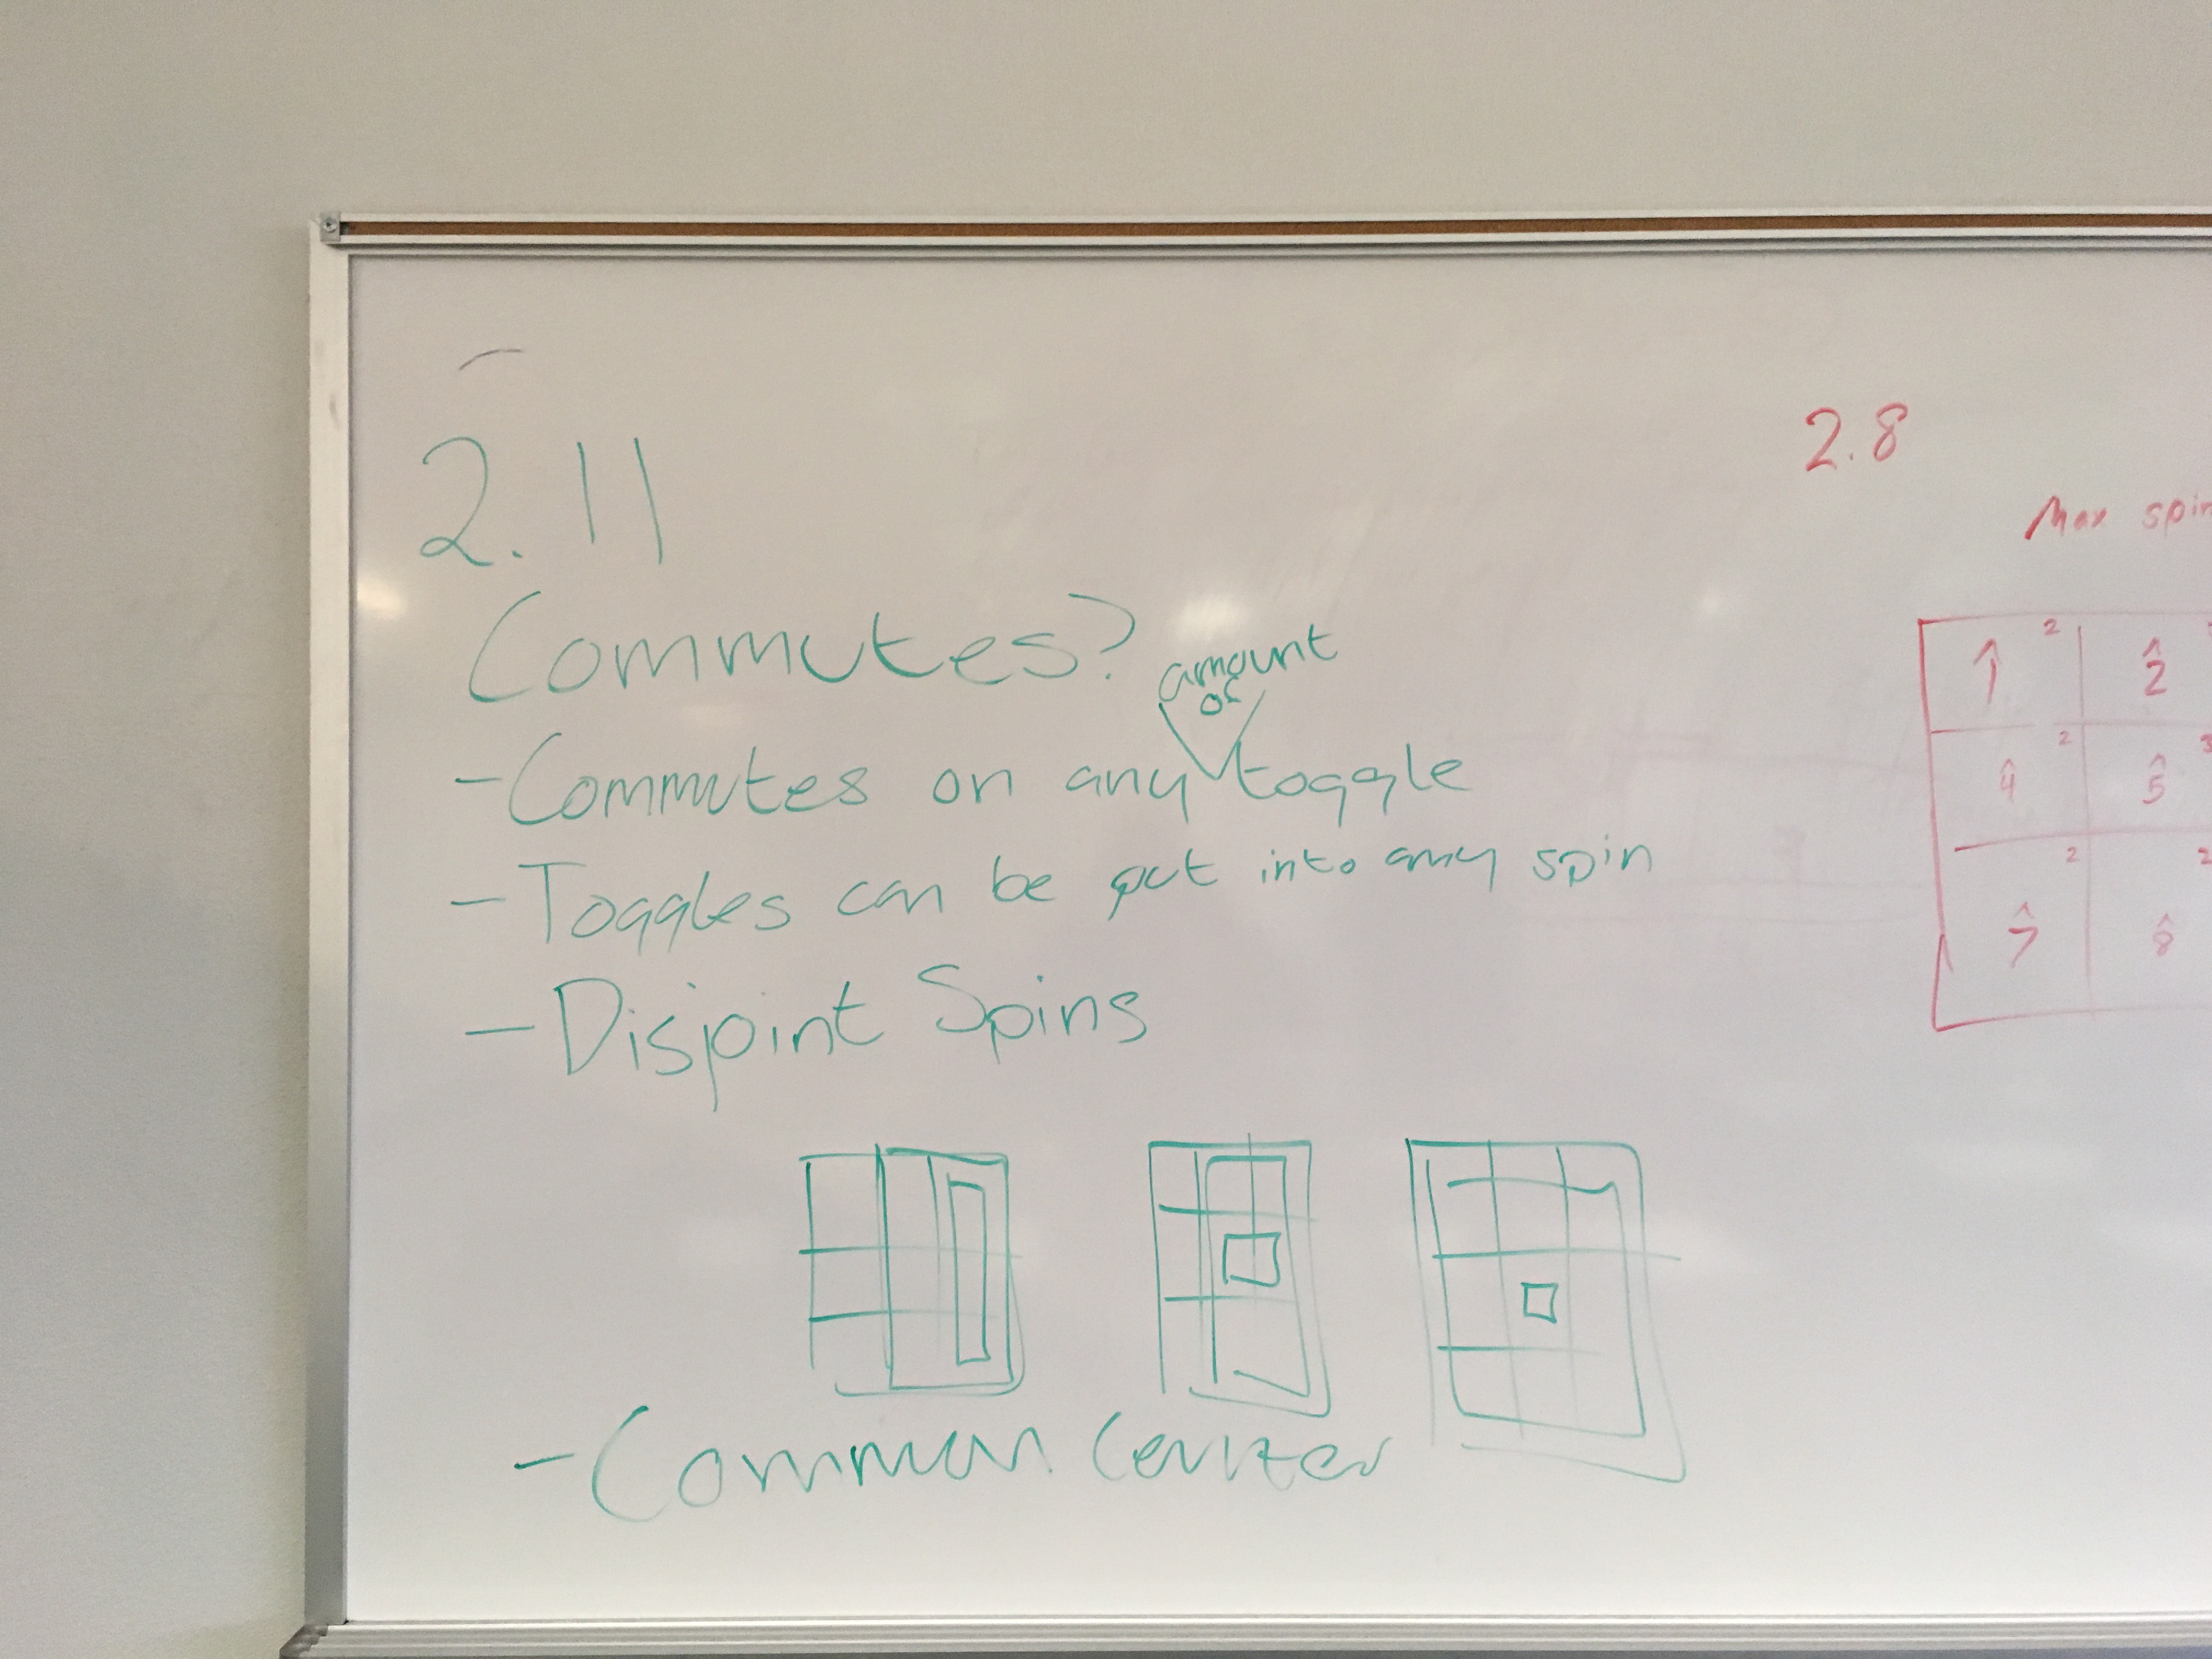 2.11
Commutes?
amount
of
- Commutes on any toggle
- Toggles can be put into any spin
- Disjoint Spins
- Common Center
2.8
Max spin
1̂ 2 2̂
4̂ 2 5̂ 3
7̂ 2 8̂ 2